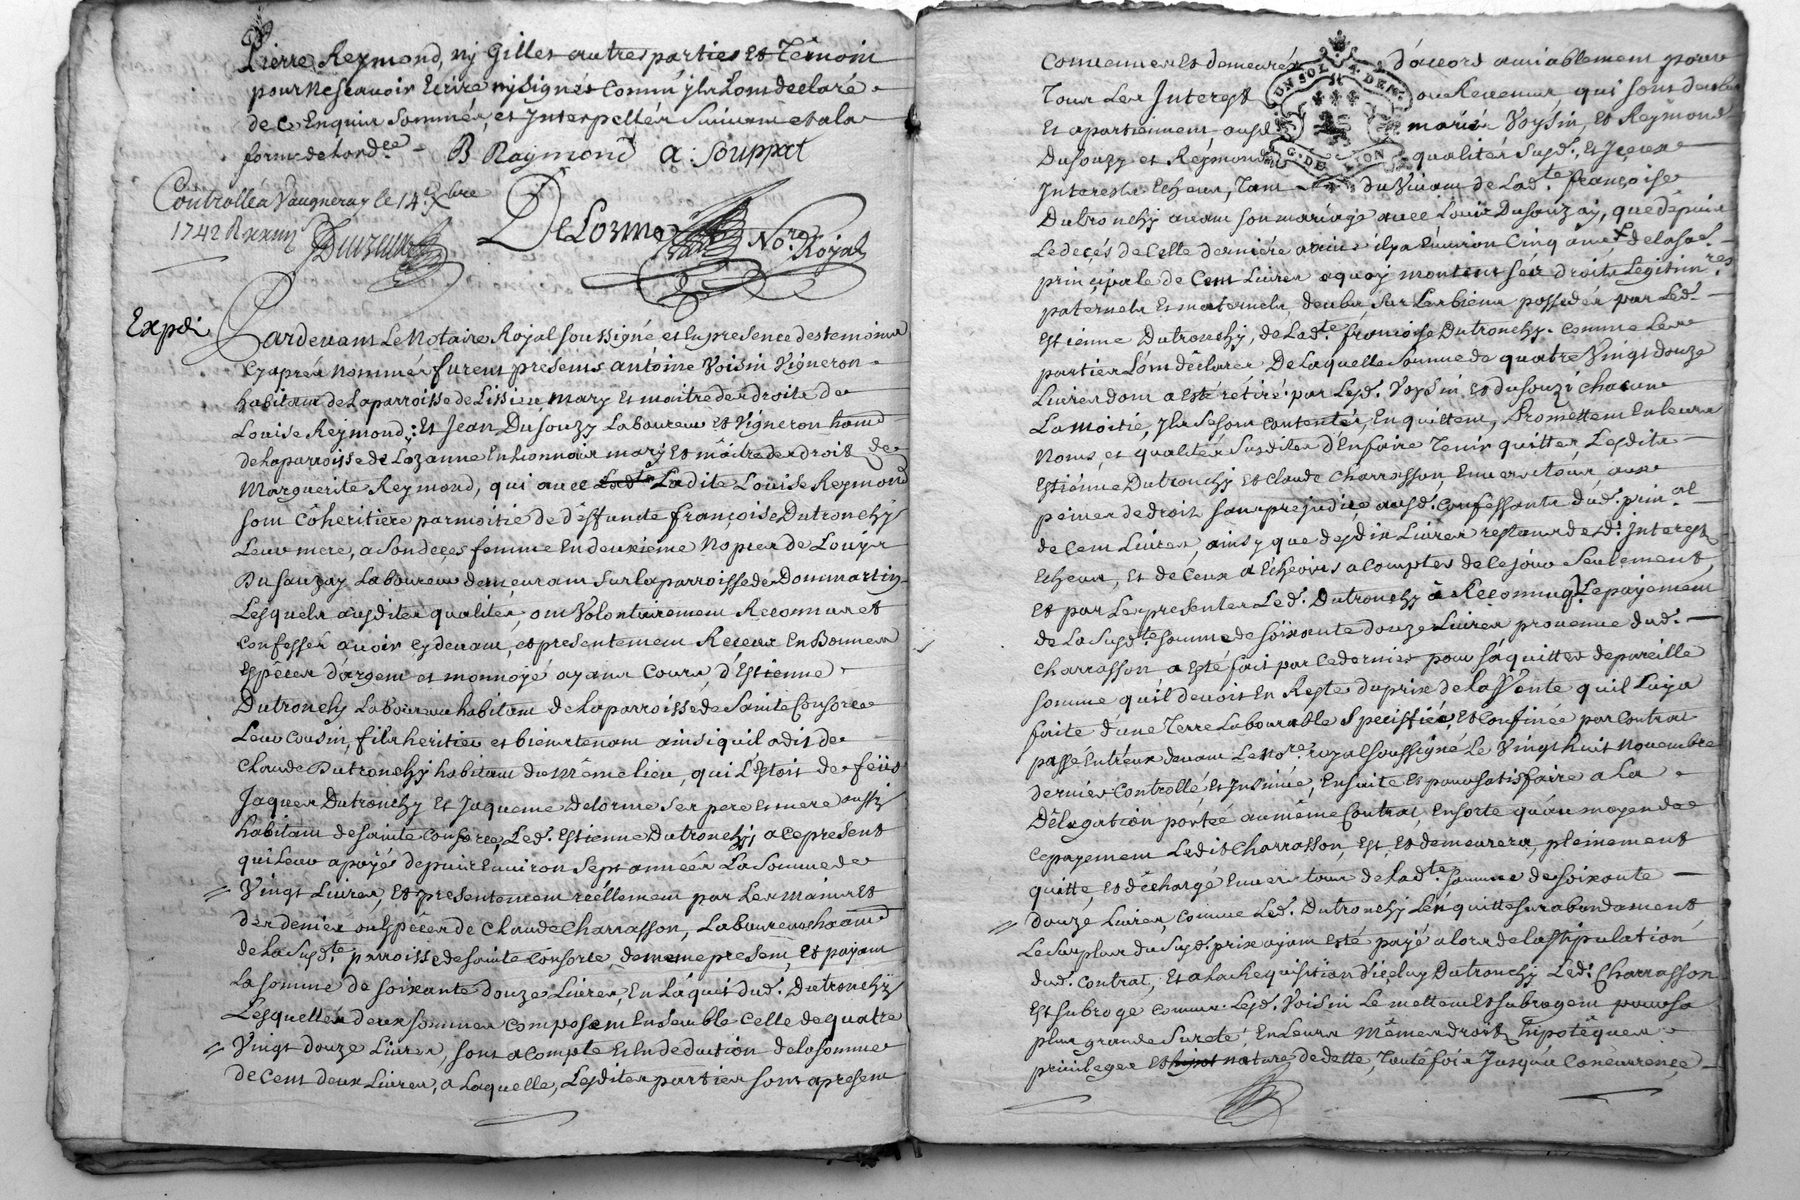 Pierre Reymond, ny Gilles autres parties et Temoin
pour ne scavoir Ecrire ny signer comm' jls l'ont declaré
de ce Enquis sommés, et Interpellés suivant et a la
forme de l'ord.ce - B Raymond a : Souppat
Controllé a Vaugneray le 14.e Xbre
1742 R
DeLorme No.re Royal
Expdi
Pardevant Le Notaire Royal soussigné et En presence des temoins
Cy après nommés furent presents antoine Voisin Vigneron
habitant de La parroisse de Lissieu mary et maitre des droits de
Louise Reymond; Et Jean Dusouzy Laboureur et Vigneron habnd
de la parroisse de Lozanne En Lionnois mary Et maitre des droits de
Marguerite Reymond, qui avec Ladte Ladite Louise Reymond
sont Côheritiere par moitié de déffunte françoise Dutronchy
Leur mere, a son deçes femme En deuxiéme Nopces de Louys
Dusauzay Laboureur demeurant sur la parroisse de Dommartin
Lesquels ausdites qualités, ont Volontairement Reconnus et
confessés avoir cy devant, et presentement Reçeus En Bonnes
Espéces d'argent et monnoye ayant Cours, d'Estienne
Dutronchy Laboureur habitant de La parroisse de Sainte Consorce
Leur cousin, fils heritier et bientenant ainsi quil a dit de
Claude Dutronchy habitant du même lieu, qui L'Etoit de feüs
Jaques Dutronchy Et Jaqueme delorme ses pere et mere aussy
habitant de sainte Consorce, Led. Estienne Dutronchy a ce present
qui Leur a payés depuis Environ sept années La somme de
Vingt Livres, Et presentement réellement par Les mains Et
des deniers ou Espéces de Claude Charrasson, Laboureur habitand
de La susdte parroisse de sainte Consorce, de meme present, Et payant
La somme de soixante douze Livres, En L'aquit dud. Dutronchy
Lesquelles deux sommes composent Ensemble Celle de quatre
Vingt douze Livres, sont a compte Et En deduction de la somme
de Cent deux Livres, a Laquelle, Lesdites parties sont a present
Convenues et demeurés d'accord amiablement pour
UN SOL 4. DE.
G. DE LYON
Tous Les Interest ou Revenus qui sont deubs
Et apartiennent ausd. mariés Voysin, et Reymond
Dusouzy et Reymond qualités susd., Et Jceux
Interests Echeus, Tant du Vivant de Lad.te françoise
Dutronchy avant son mariage avec Louis Dusouzay, que depuis
Le deçés de Celle derniére arrivé il y a Environ Cinq années de la sode
principale de Cent Livres a quoy montent ses droits Legitimres
paternels Et maternels, deubs sur Les biens possedés par Led.
Estienne Dutronchy, de Lad.te françoise Dutronchy. Comme Les
parties L'ont déclarés De Laquelle somme de quatre Vingt douze
Livres dont a Esté rétiré par Lesd. Voysin, et dusouzi chacun
La moitié, Jls se sont Contentés, En quittent, Promettent En leurs
Noms, et qualités susdites d'En faire Tenir quittes, Lesdits
Estiénne Dutronchy et Claude Charrasson, Envers tous, aux
peines de droit sans prejudice ausd. Confessants dud. prin.al
de Cent Livres, ainsy que des dix Livres restans desd. Interest
Echeus, Et de Ceux a Echeoirs a Compter de Ce jour seulement,
Et par Les presentes Led. Dutronchy à Reconnu q. Le payement
de La susd.te somme de soixante douze Livres provenue dud.
Charrasson a Esté fait par Ce dernier pour s'aquitter de pareille
somme qu'il devoit En Reste du prix de la Vente qu'il Luy a
faite d'une Terre Labourable Speciffiée, Et Confinée par Contrat
passé Entreux devant Le No.re royal soussigné Le Vingt huit Novembre
dernier Controllé, et Jnsinué, Ensuite Et pour satisfaire a La
Délegation portée au même Contrat, Ensorte qu'au moyen de
Ce payement Ledit Charrasson, Est, Et demeurera, pleinement
quitte, et déchargé Envers tous de Lad.te somme de soixante
douze Livres, Comme Led. Dutronchy L'en quitte surabondament
Le surplus du susd. prix ayant Esté payé a lors de la stipulation
dud. Contrat; Et a La Requisition d'icéluy Dutronchy Led. Charrasson
Est subrogé Comme Lesd. Voisin Le mettent Et subrogent pour sa
plus grande sureté, En Leurs Mêmes droits, hipotêques
privileges Et hipot nature de dette, Toute fois Jusqu'a Concurrençe